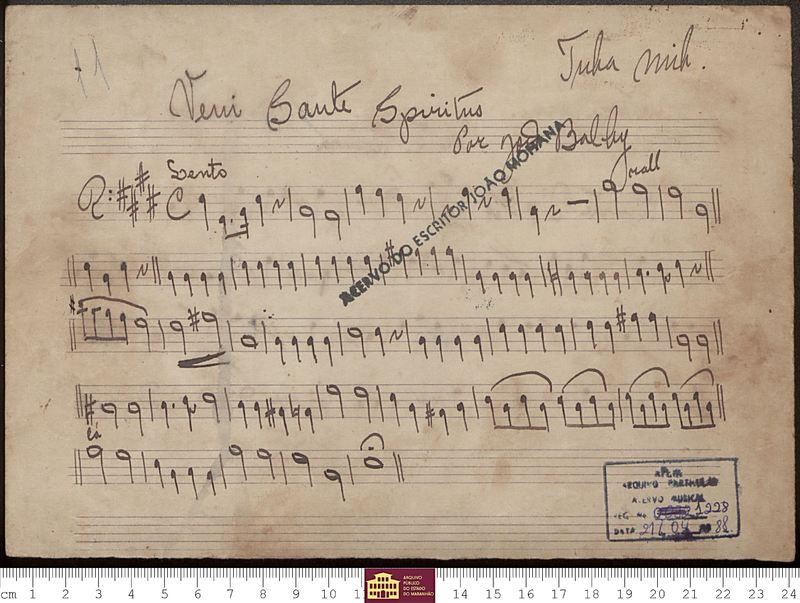 11
Tuba mib.
Veni Sante Spiritus
Por Balby
Lento
rall
ACERVO DO ESCRITOR JOÃO MOHANA
ARQUIVO PARTICULAR
ACERVO MUSICAL
REG. No 1228
DATA 21/04 88
cm 1 2 3 4 5 6 7 8 9 10 14 15 16 17 18 19 20 21 22 23 24
ARQUIVO
PÚBLICO
DO ESTADO
DO MARANHÃO